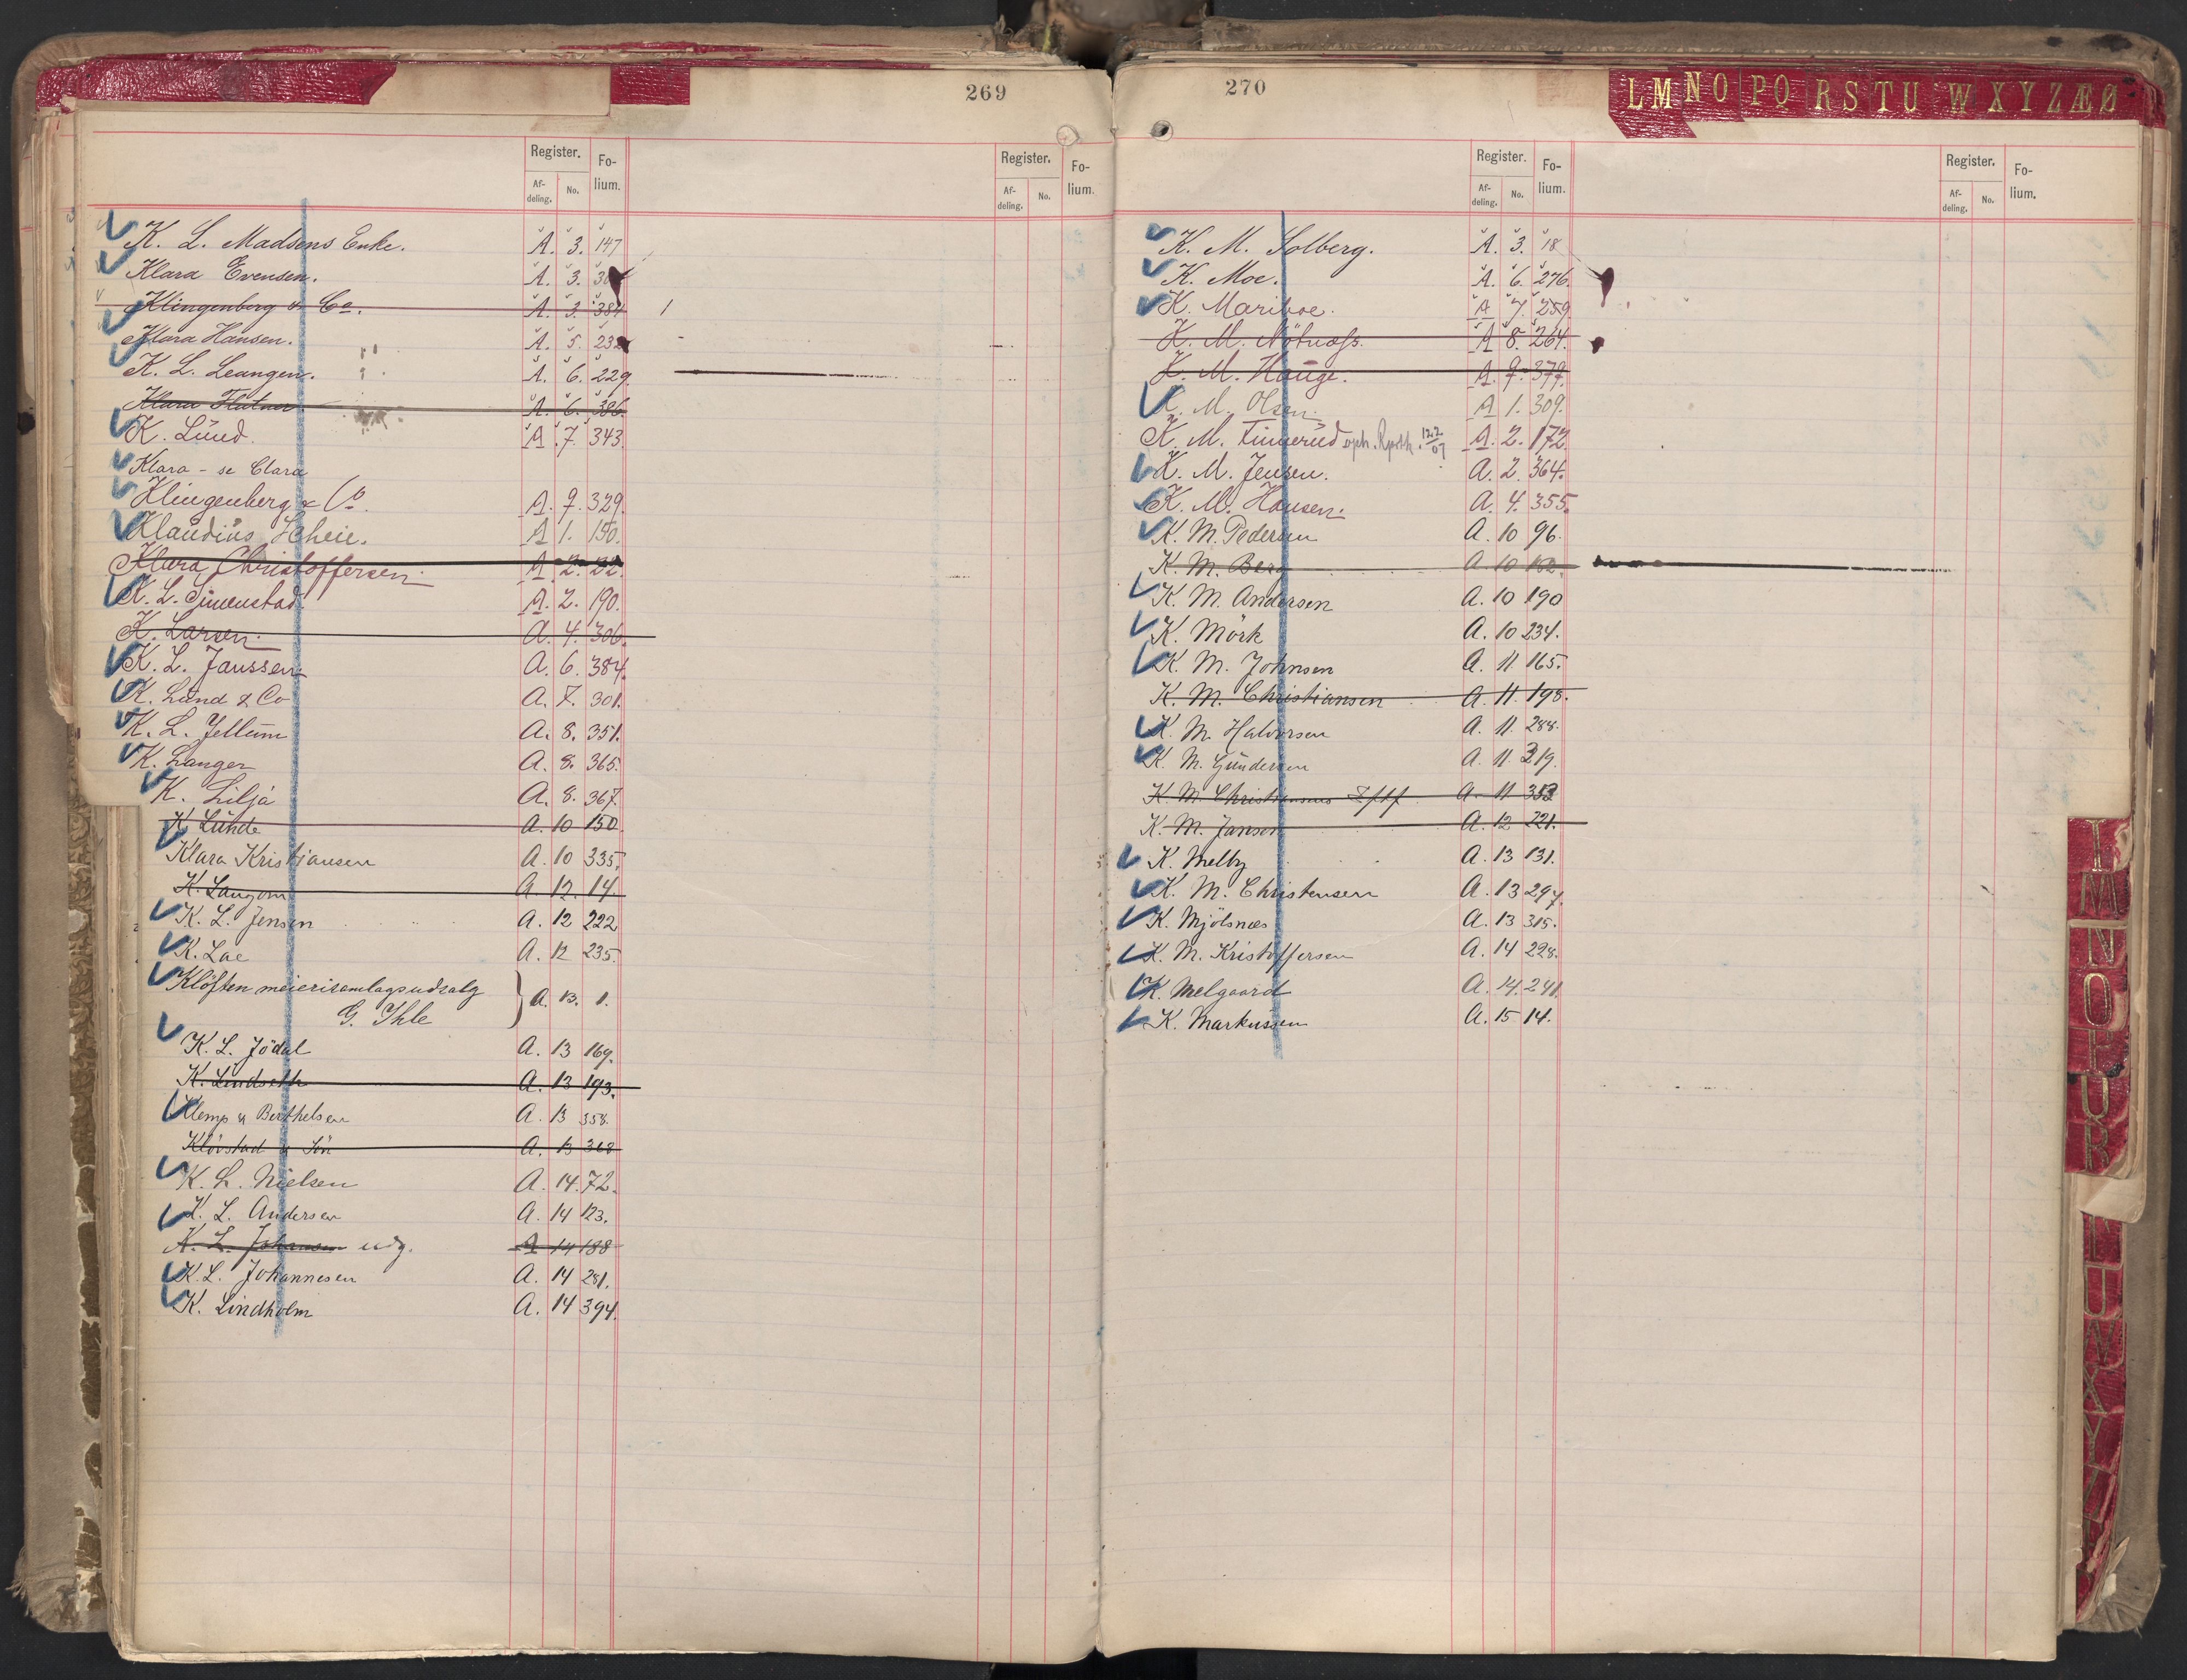 269
Register. Fo-lium. Register. Fo-lium.
Af-deling. No. Af-deling. No.
K. L. Madsens Enke. A. 3. 147
Klara Evensen. A. 3.
Klingenberg & Co. A. 3. 384
Klara Hansen. A. 5. 232
K. L. Leangen. A. 6. 229.
Klara A. 6. 386.
K. Lund. A. 7. 343
Klara - se Clara
Klingenberg & Co. A. 9. 329.
Klaudius Scheie. A 1. 150.
Klara Christoffersen. A. 2. 22.
K. L. Simenstad. A. 2. 190.
K. Larsen. A. 4. 306.
K. L. Janssen A. 6. 384.
K. Lund & Co A. 7. 301.
K. L. Jellum A. 8. 351.
K. Langer A. 8. 365.
K. Lilja A. 8. 367.
K. Lunde A. 10 150.
Klara Kristiansen A. 10 335.
K. Langom A 12. 14.
K. L. Jensen A. 12 222
K. Lae A. 12 235.
Klöften meierisamlagsudsalg
G. Ihle } A. 13. 1.
K. L. Jödal A. 13 169.
K. Lindseth A. 13 193.
Klemp & Berthelsen A. 13 358.
Klövstad & Sön A. 13 368
K. L. Nielsen A. 14. 72.
K. L. Andersen A. 14 123.
K. L. Johansen udg. A 14 188
K. L. Johannesen A. 14 281.
K. Lindholm A. 14 394.
270
L M N O P Q R S T U W X Y Z Æ Ø
Register. Fo-lium. Register. Fo-lium.
Af-deling. No. Af-deling. No.
K. M. Solberg. A. 3. 18
K. Moe. A. 6. 276.
K. Mariboe. A 7. 259
K. M. A 8. 264.
K. M. Hauge. A. 9. 379.
K. M. Olsen. A 1. 309.
K. M. A. 2. 172
K. M. Jensen. A. 2. 364.
K. M. Hansen. A. 4. 355.
K. M. Pedersen A. 10 96.
K. M. Berg A. 10 152.
K. M. Andersen A. 10 190
K. Mörk A. 10 234.
K. M. Johnsen A. 11. 165.
K. M. Christiansen A. 11. 198.
K. M. Halvorsen A. 11. 288.
K. M. Gundersen A. 11. 319.
K. M. Christiansens Eftf. A. 11 353
K. M. Jansen A. 12 221.
K. Melby A. 13 131.
K. M. Christensen A. 13 297.
K. Mjölsnes A. 13 315.
K. M. Kristoffersen A. 14 298.
K. Melgaard A. 14. 241.
K. Markussen A. 15 14.